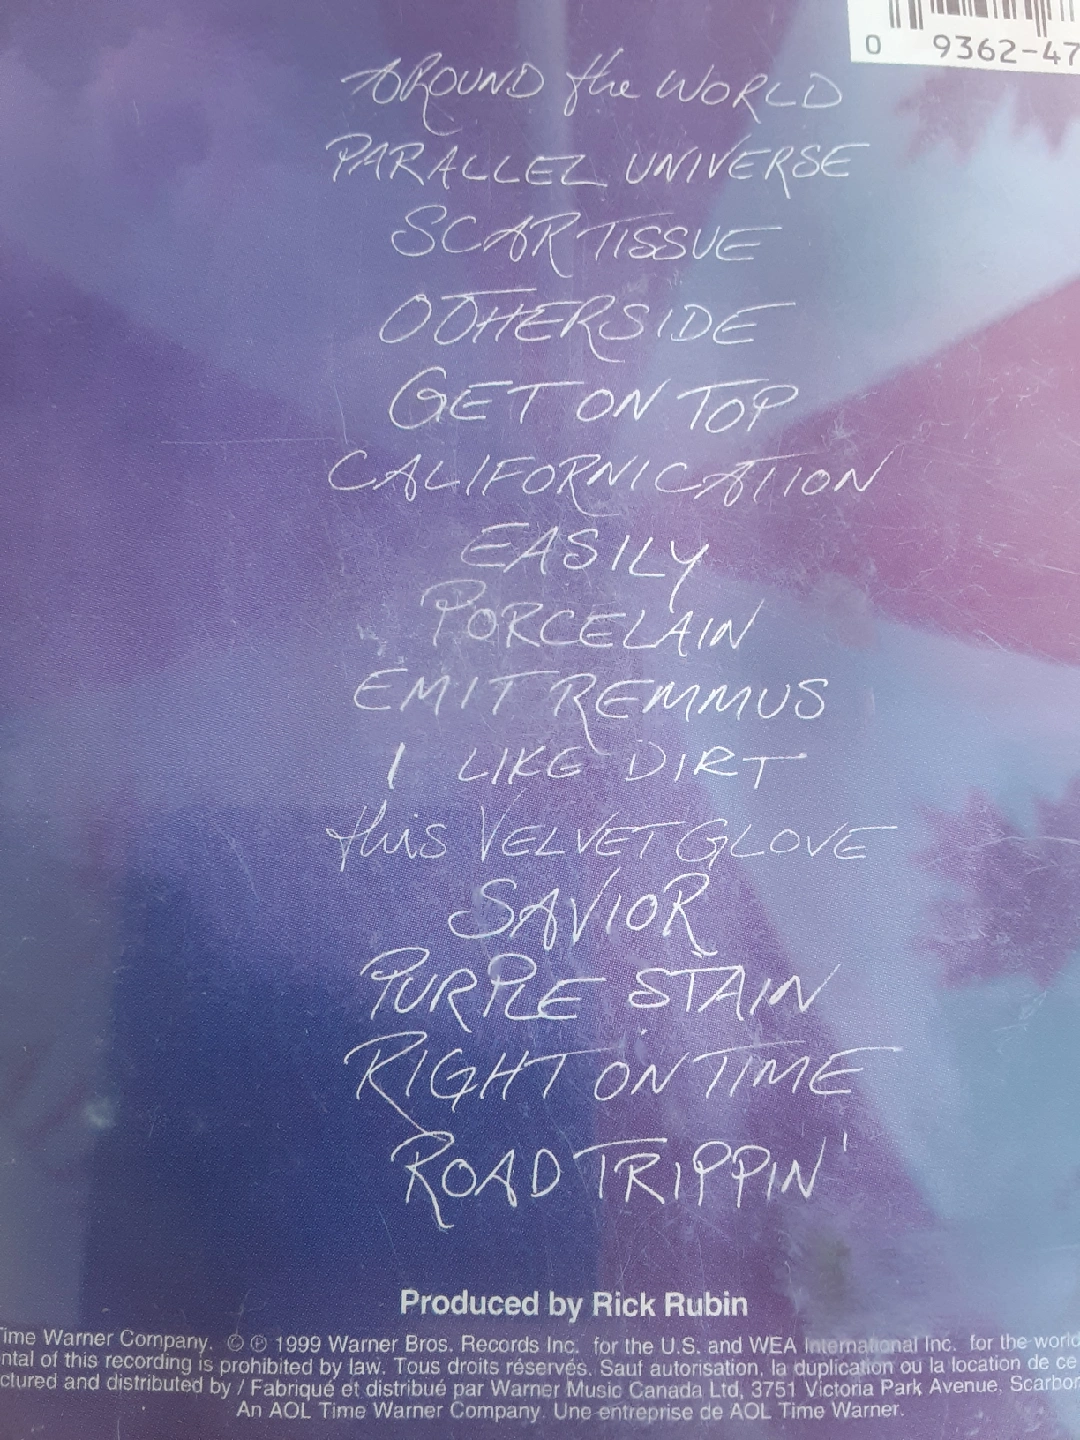 0 9362-47
AROUND the WORLD
PARALLEL UNIVERSE
SCAR TISSUE
OTHERSIDE
GET ON TOP
CALIFORNICATION
EASILY
PORCELAIN
EMIT REMMUS
I LIKE DIRT
this VELVET GLOVE
SAVIOR
PURPLE STAIN
RIGHT ON TIME
ROAD TRIPPIN'
Produced by Rick Rubin
Time Warner Company. © ℗ 1999 Warner Bros. Records Inc. for the U.S. and WEA International Inc. for the world
ntal of this recording is prohibited by law. Tous droits réservés. Sauf autorisation, la duplication ou la location de ce
ctured and distributed by / Fabriqué et distribué par Warner Music Canada Ltd, 3751 Victoria Park Avenue, Scarbor
An AOL Time Warner Company. Une entreprise de AOL Time Warner.